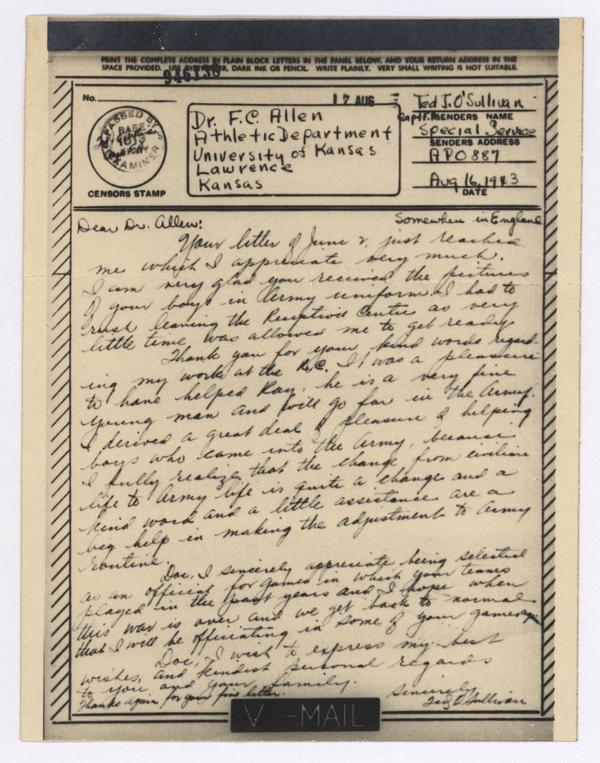 PRINT THE COMPLETE ADDRESS IN PLAIN BLOCK LETTERS IN THE PANEL BELOW, AND YOUR RETURN ADDRESS IN THE
SPACE PROVIDED. USE TYPEWRITER, DARK INK OR PENCIL. WRITE PLAINLY. VERY SMALL WRITING IS NOT SUITABLE.
946136
No.
PASSED BY
BASE
EXAMINER
CENSORS STAMP
Dr. F.C. Allen
Athletic Department
University of Kansas
Lawrence
Kansas
17 AUG
Ted J. O'Sullivan
SENDERS NAME
Special Service
SENDERS ADDRESS
APO 887
Aug 16, 1943
DATE
Dear Dr. Allen:
Somewhere in England
Your letter of June 2, just reached
me which I appreciate very much.
I am very glad you received the pictures
of your boys in Army uniform. I had to
rush leaving the Reception Center as very
little time was allowed me to get ready.
Thank you for your kind words regard-
ing my work at the R.C. It was a pleasure
to have helped Ray, he is a very fine
young man and will go far in the Army.
I derived a great deal of pleasure of helping
boys who came into the Army, because
I fully realize that the change from civilian
life to Army life is quite a change and a
kind word and a little assistance are a
big help in making the adjustment to Army
routine.
Doc, I sincerely appreciate being selected
as an official for games in which your teams
played in the past years and I hope when
this war is over and we get back to normal
that I will be officiating in some of your games again
Doc, I wish to express my best
wishes, and kindest personal regards
to you and your family.
Thanks again for your fine letter.
Sincerely
Ted O'Sullivan
V···—MAIL